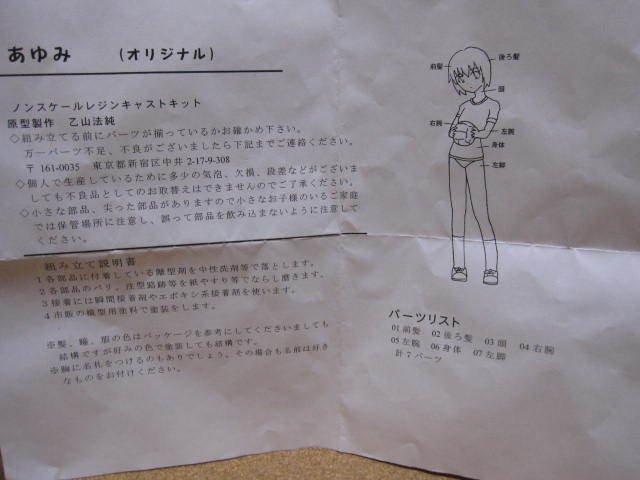 あゆみ　(オリジナル)
ノンスケールレジンキャストキット
原型製作　乙山法純
◇組み立てる前にパーツが揃っているかお確かめ下さい。
万一パーツ不足、不良がございましたら下記までご連絡ください。
〒161-0035　東京都新宿区中井 2-17-9-308
◇個人で生産しているために多少の気泡、欠損、段差などがございま
しても不良品としてのお取替えはできませんのでご了承ください。
◇小さな部品、尖った部品がありますので小さなお子様のいるご家庭
では保管場所に注意し、誤って部品を飲み込まないように注意して
ください。
組み立て説明書
1 各部品に付着している離型剤を中性洗剤等で落とします。
2 各部品のバリ、注型跡等を紙やすり等でならし磨きます。
3 接着には瞬間接着剤やエポキシ系接着剤を使います。
4 市販の模型用塗料で塗装をします。
※髪、瞳、眉の色はパッケージを参考にしてくださいましても
結構ですが好みの色で塗装しても結構です。
※胸に名札をつけるのもありでしょう。その場合も名前は好き
なものをお付けください。
前髪
後ろ髪
頭
右腕
左腕
身体
左脚
パーツリスト
01 前髪　02 後ろ髪　03 頭　04 右腕
05 左腕　06 身体　07 左脚
計 7 パーツ